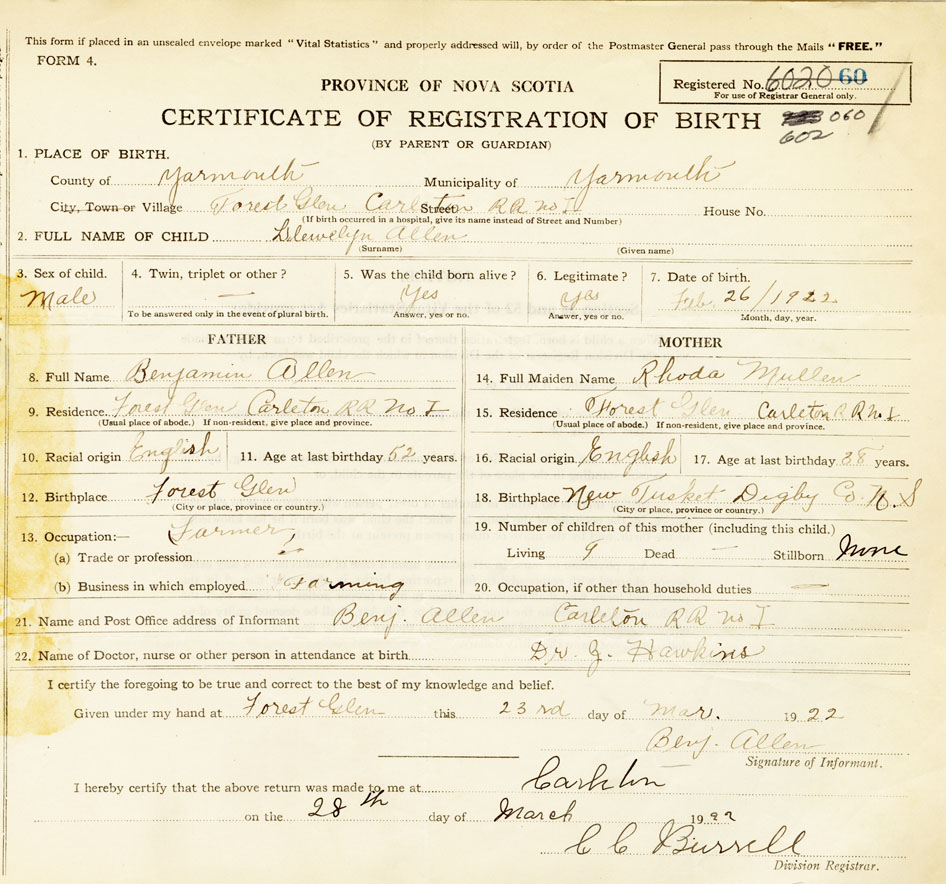 This form if placed in an unsealed envelope marked "Vital Statistics" and properly addressed will, by order of the Postmaster General pass through the Mails "FREE."
FORM 4.
Registered No. 6020 60
For use of Registrar General only.
060
602
PROVINCE OF NOVA SCOTIA
CERTIFICATE OF REGISTRATION OF BIRTH
(BY PARENT OR GUARDIAN)
1. PLACE OF BIRTH.
County of Yarmouth Municipality of Yarmouth
City, Town or Village Forest Glen Carleton RR No I Street House No.
(If birth occurred in a hospital, give its name instead of Street and Number)
2. FULL NAME OF CHILD Llewelyn Allen
(Surname) (Given name)
3. Sex of child. Male
4. Twin, triplet or other? —
To be answered only in the event of plural birth.
5. Was the child born alive? Yes
Answer, yes or no.
6. Legitimate? Yes
Answer, yes or no.
7. Date of birth. Feb. 26/1922
Month, day, year.
FATHER
8. Full Name Benjamin Allen
9. Residence. Forest Glen Carleton RR No I
(Usual place of abode.) If non-resident, give place and province.
10. Racial origin English 11. Age at last birthday 52 years.
12. Birthplace Forest Glen
(City or place, province or country.)
13. Occupation:— Farmer,
(a) Trade or profession
(b) Business in which employed Farming
MOTHER
14. Full Maiden Name Rhoda Mullen
15. Residence Forest Glen Carleton RR No I
(Usual place of abode.) If non-resident, give place and province.
16. Racial origin English 17. Age at last birthday 38 years.
18. Birthplace New Tusket Digby Co. N.S
(City or place, province or country.)
19. Number of children of this mother (including this child.)
Living 9 Dead — Stillborn None
20. Occupation, if other than household duties —
21. Name and Post Office address of Informant Benj. Allen Carleton RR No I
22. Name of Doctor, nurse or other person in attendance at birth Dr. J. Hawkins
I certify the foregoing to be true and correct to the best of my knowledge and belief.
Given under my hand at Forest Glen this 23rd day of Mar. 1922
Benj. Allen
Signature of Informant.
I hereby certify that the above return was made to me at Carleton
on the 28th day of March 1922
C C Burrell
Division Registrar.